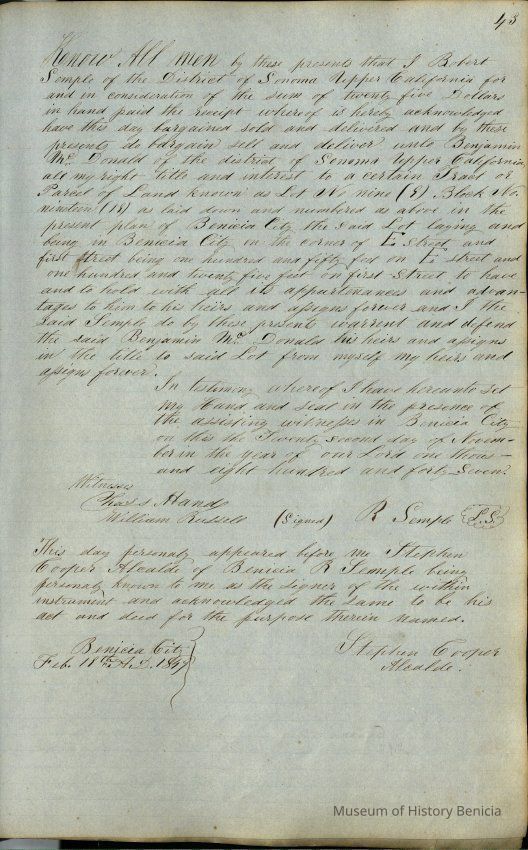 43
Know All men by these presents that I Robert
Semple of the District of Sonoma Upper California for
and in consideration of the sum of twenty five Dollars
in hand paid the receipt whereof is hereby acknowledged
have this day bargained sold and delivered and by these
presents do bargain sell and deliver unto Benjamin
Mc Donald of the district of Sonoma Upper California
all my right title and interest to a certain Tract or
Parcel of Land known as Lot No nine (9) Block No.
nineteen (19) as laid down and numbered as above in the
present plan of Benicia City the said Lot laying and
being in Benicia City on the corner of E Street and
first Street being one hundred and fifty feet on E street and
one hundred and twenty five feet on first Street to have
and to hold with all its appurtenances and advan-
tages to him to his heirs and assigns forever and I the
said Semple do by these presents warrent and defend
the said Benjamin Mc Donald his heirs and assigns
in the title to said Lot from myself my heirs and
assigns forever.
In testimony whereof I have hereunto set
my Hand and seal in the presence of
the assisting witnesses in Benicia City
on this the Twenty second day of Novem-
ber in the year of our Lord one thous-
and eight hundred and forty-seven.
Witnesses
Chas S Hand
William Russell (Signed) R Semple L.S.
This day personaly appeared before me Stephen
Cooper Alcalde of Benicia R Seample being
personaly known to me as the signer of the within
instrument and acknowledged the same to be his
act and deed for the purpose therein named.
Benicia City Stephen Cooper
Feb. 18th A.D. Alcalde.
Museum of History Benicia